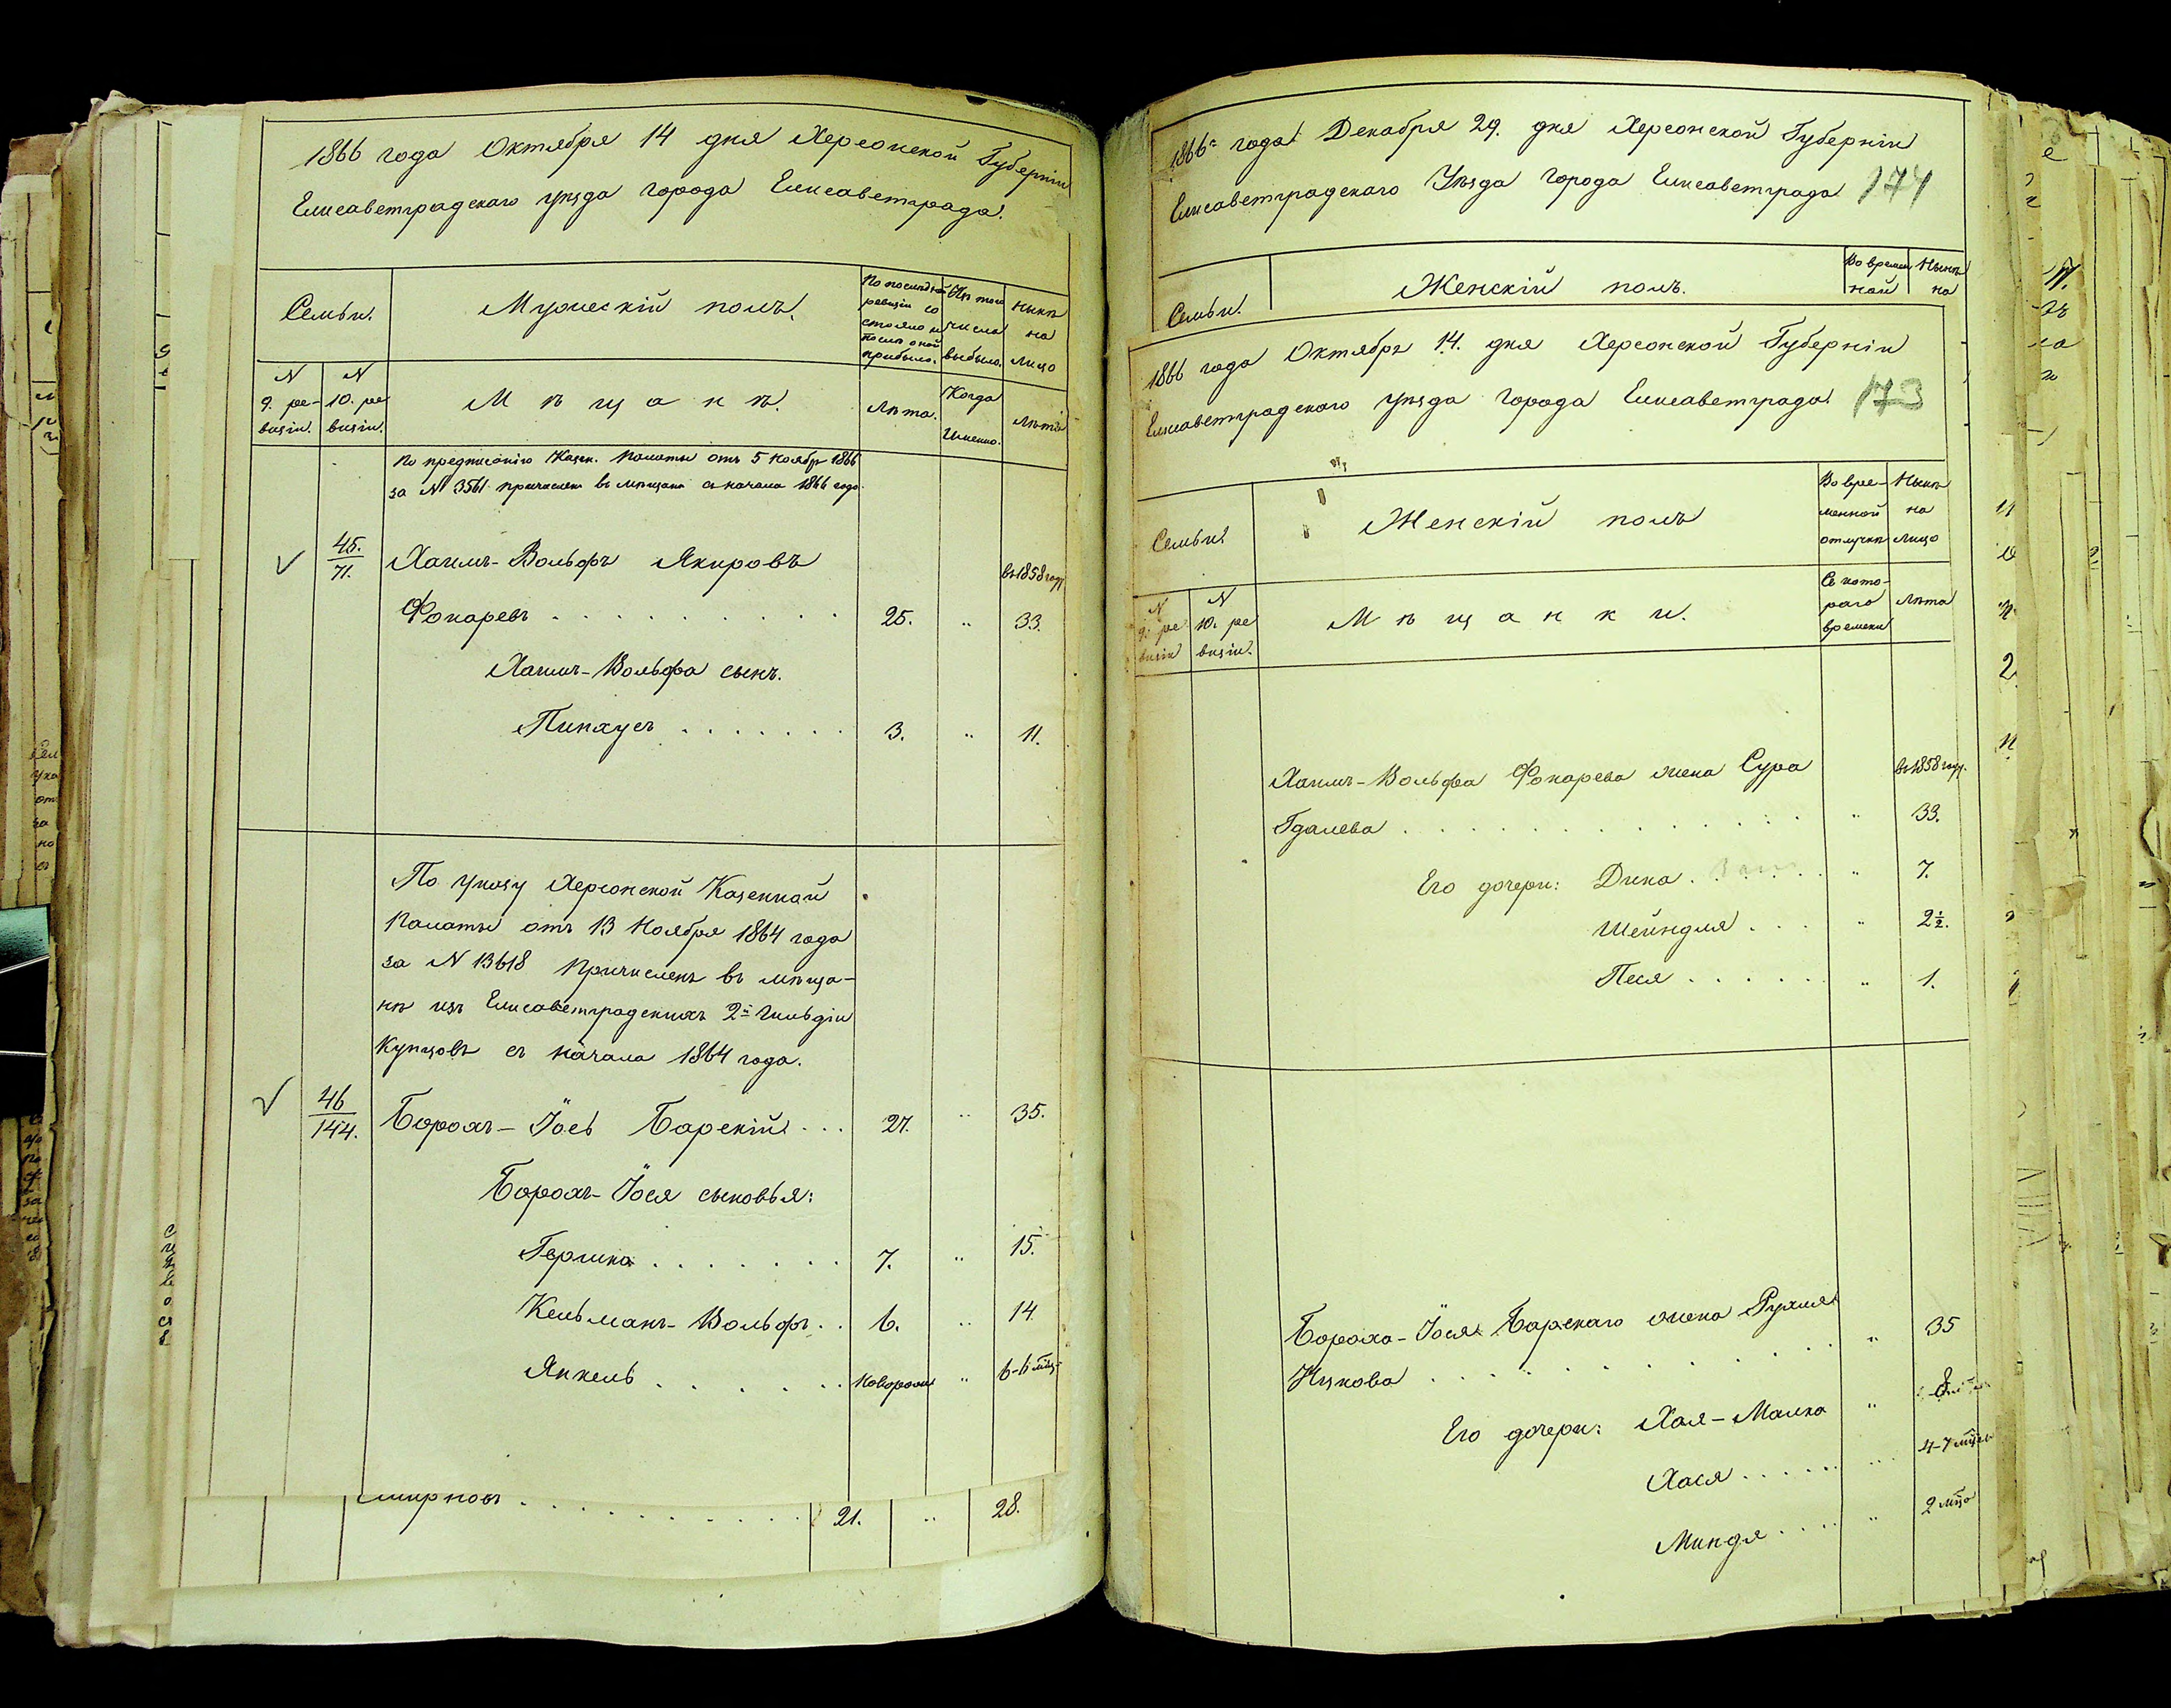 1866 года Октября 14 дня Херсонской Губерніи
Елисаветградскаго уѣзда города Елисаветграда.
Семьи.
Мужескій полъ.
По последней ревизіи состояло и после оной прибыло.
Изъ того числа выбыло.
Нынѣ на лицо
N 9. ревизіи.
N 10. ревизіи.
Мѣщане.
Лѣта.
Когда Именно.
Лѣта
По предписанію Казен. Палаты отъ 5 Ноябр 1866
за N 3561 причислен въ мѣщане съ начала 1866 года.
45.
71.
Хаимъ-Вольфъ Якировъ
въ 1858 году
Фокаревъ . . . 25. " 33.
Хаимъ-Вольфа сынъ.
Пинхусъ . . . 3. " 11.
По указу Херсонской Казенной
Палаты отъ 13 Ноября 1864 года
за N 13618 причисленъ въ мѣща-
не изъ Елисаветградскихъ 2й гильдіи
Купцовъ съ начала 1864 года.
46
144.
Борохъ-Іось Барскій . . . 27. " 35.
Борохъ-Іося сыновья:
Гершко . . . 7. " 15.
Кельманъ-Вольфъ . . 6. " 14
Янкель . . . Новорож " 6-6 мѣц
Смирновъ . . . 21. " 28.
1866го года Декабря 29. дня Херсонской Губерніи
Елисаветградскаго Уѣзда города Елисаветграда 174
Семьи.
Женскій полъ.
Во времен
ной
Нынѣ
на
1866 года Октября 14. дня Херсонской Губерніи
Елисаветградскаго уѣзда города Елисаветграда. 173
Семьи.
Женскій полъ
Во вре-
менной
отлучкѣ
Нынѣ
на
лицо
N 9. ревизіи
N 10. ревизіи.
Мѣщанки.
Съ кото-
раго
времени
Лѣта
Хаимъ-Вольфа Фокарева жена Сура
въ 1858 году.
Гдалева . . . " 33.
Его дочери: Дина . . . " 7.
Шейндля . . . " 2½.
Песя . . . " 1.
Бороха-Іося Барскаго жена Рухля
" 35
Ицкова . . .
Его дочери: Хая-Малка " 8
Хася . . . 4-7 мѣцев
Миндя . . . " 2 мѣца